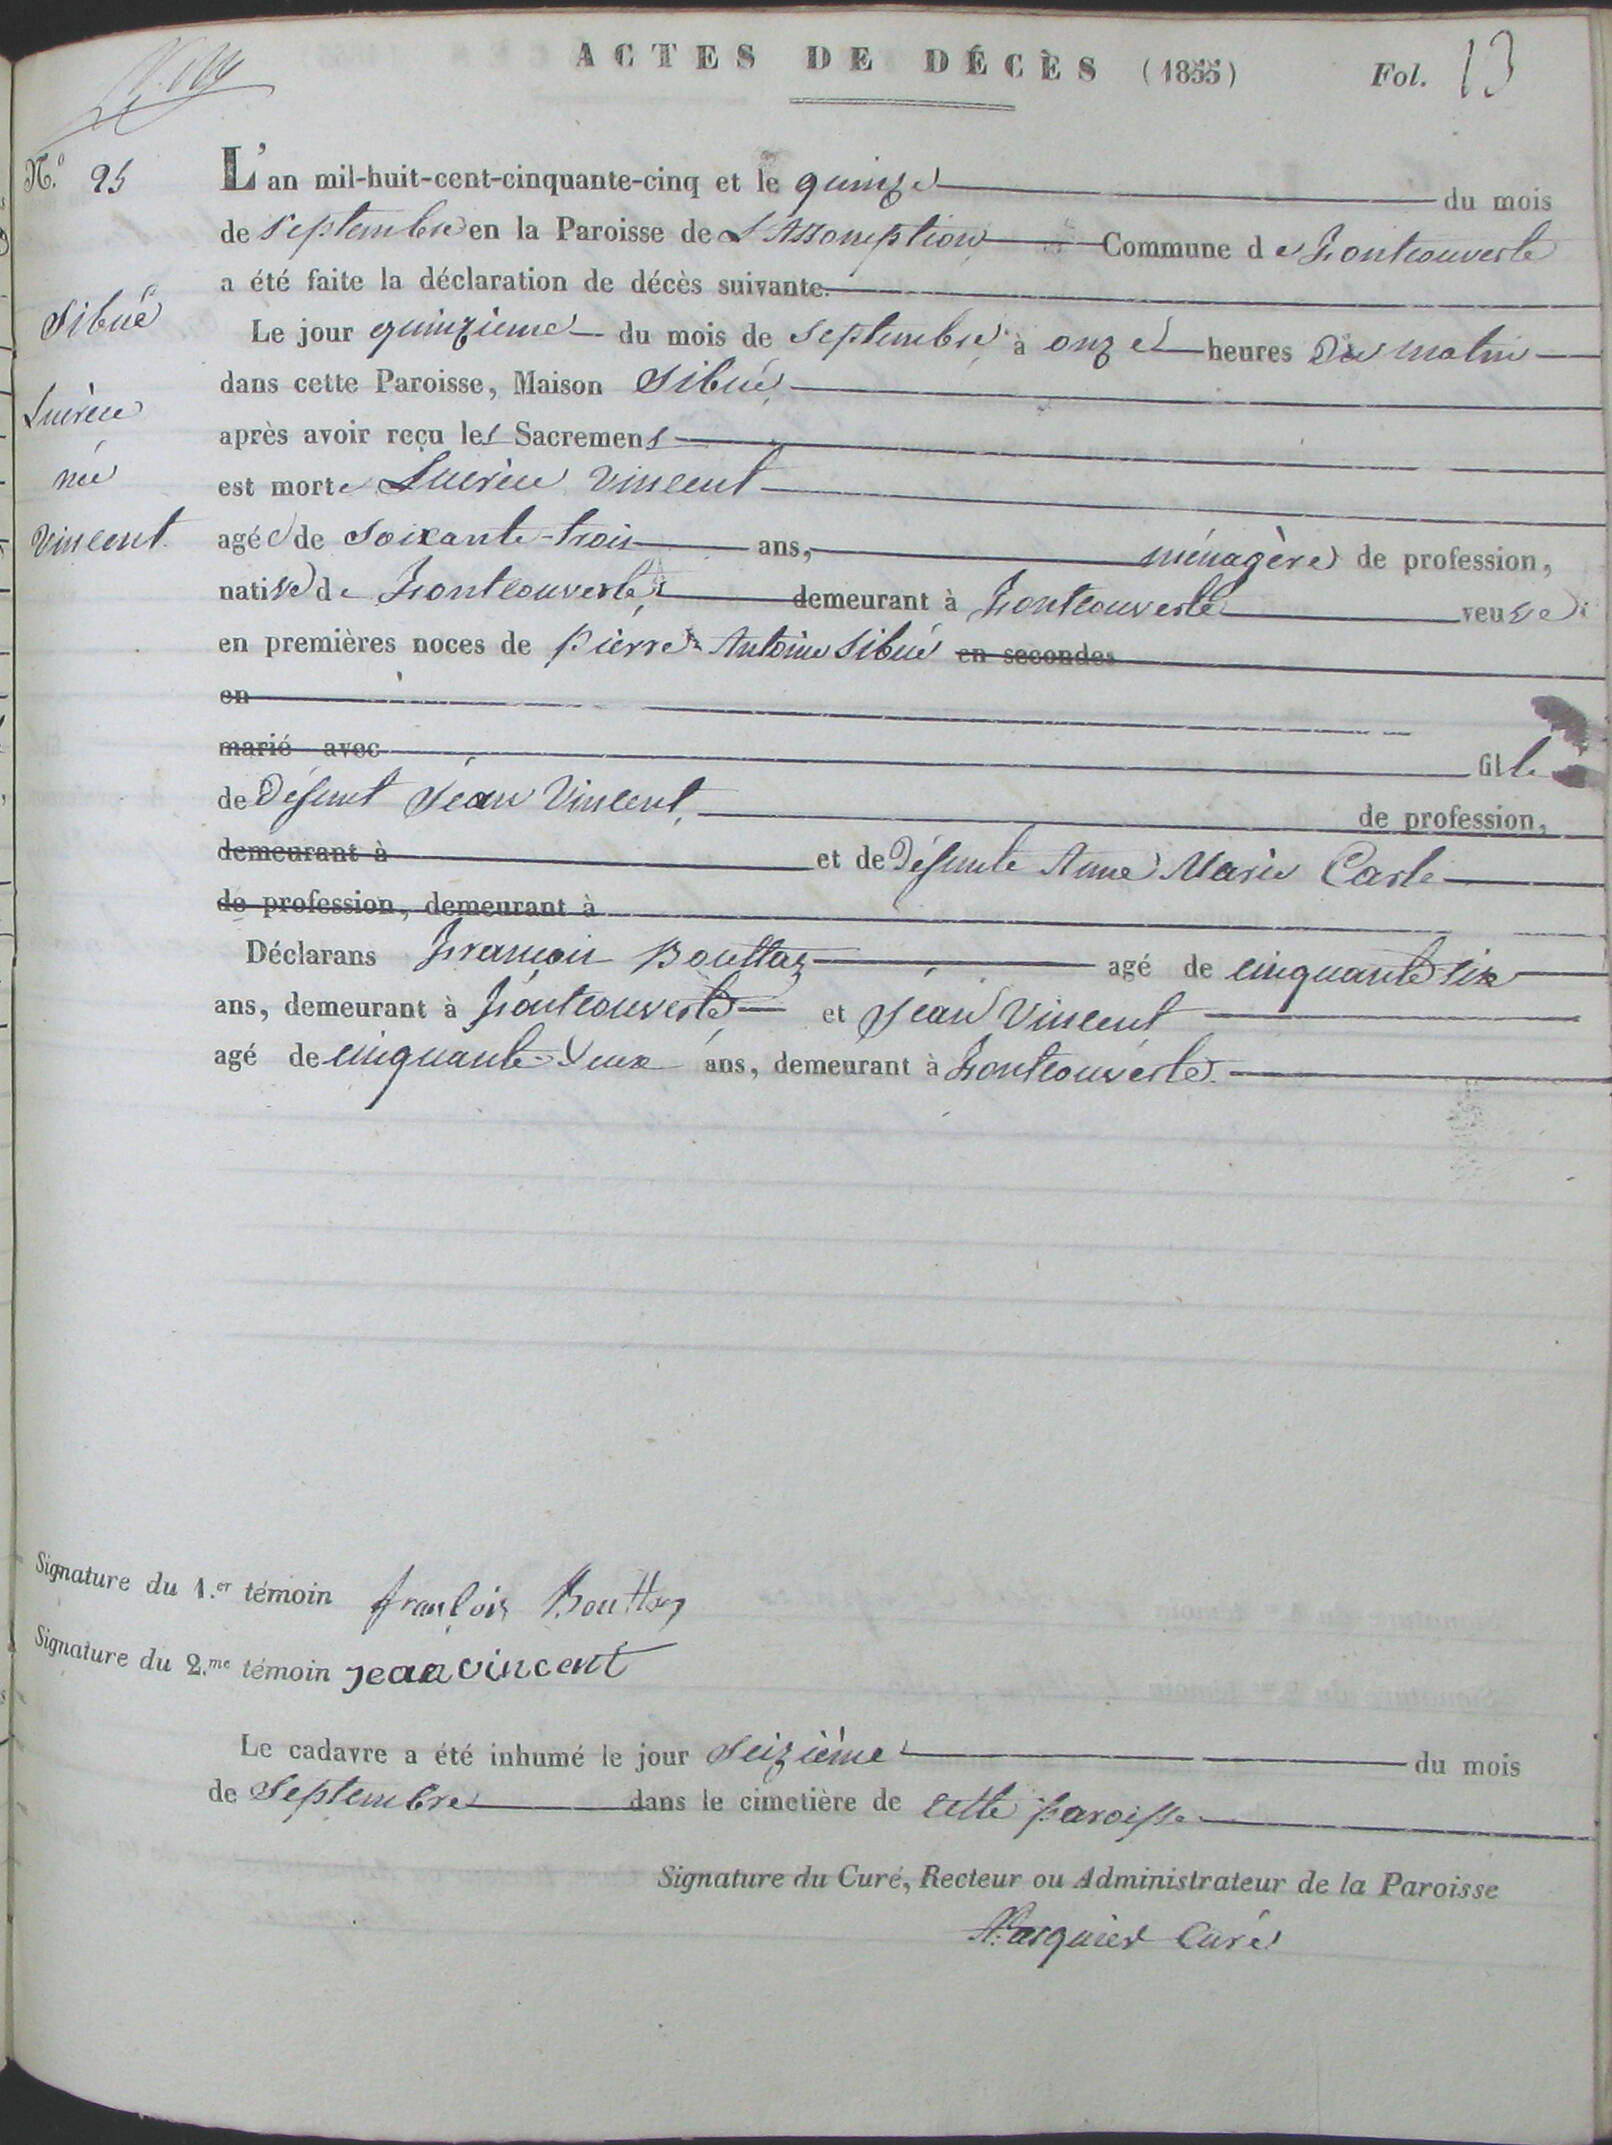 ACTES DE DÉCÈS (1855) Fol. 13
N.º 25
L'an mil-huit-cent-cinquante-cinq et le quinze du mois
de septembre en la Paroisse de L'Assomption Commune de Fontcouverte
a été faite la déclaration de décès suivante.
Sibué
Le jour quinzieme du mois de septembre à onze heures Du matin
dans cette Paroisse, Maison Sibué
Lucrèce
après avoir reçu les Sacremens
née
est morte Lucrèce Vincent
Vincent
agée de soixante-trois ans, ménagère de profession,
native de Fontcouverte, demeurant à Fontcouverte veuve
en premières noces de pierre Antoine Sibué en secondes
en
marié avec fille
de Défunt Jean Vincent, de profession,
demeurant à et de Défunte Anne Marie Carle
de profession, demeurant à
Déclarans François Bouttaz agé de cinquante six
ans, demeurant à Fontcouverte et Jean Vincent
agé de cinquante-deux ans, demeurant à Fontcouverte
Signature du 1.er témoin françois Bouttaz
Signature du 2.me témoin jean vincent
Le cadavre a été inhumé le jour seizième du mois
de septembre dans le cimetière de cette paroisse
Signature du Curé, Recteur ou Administrateur de la Paroisse
Curé